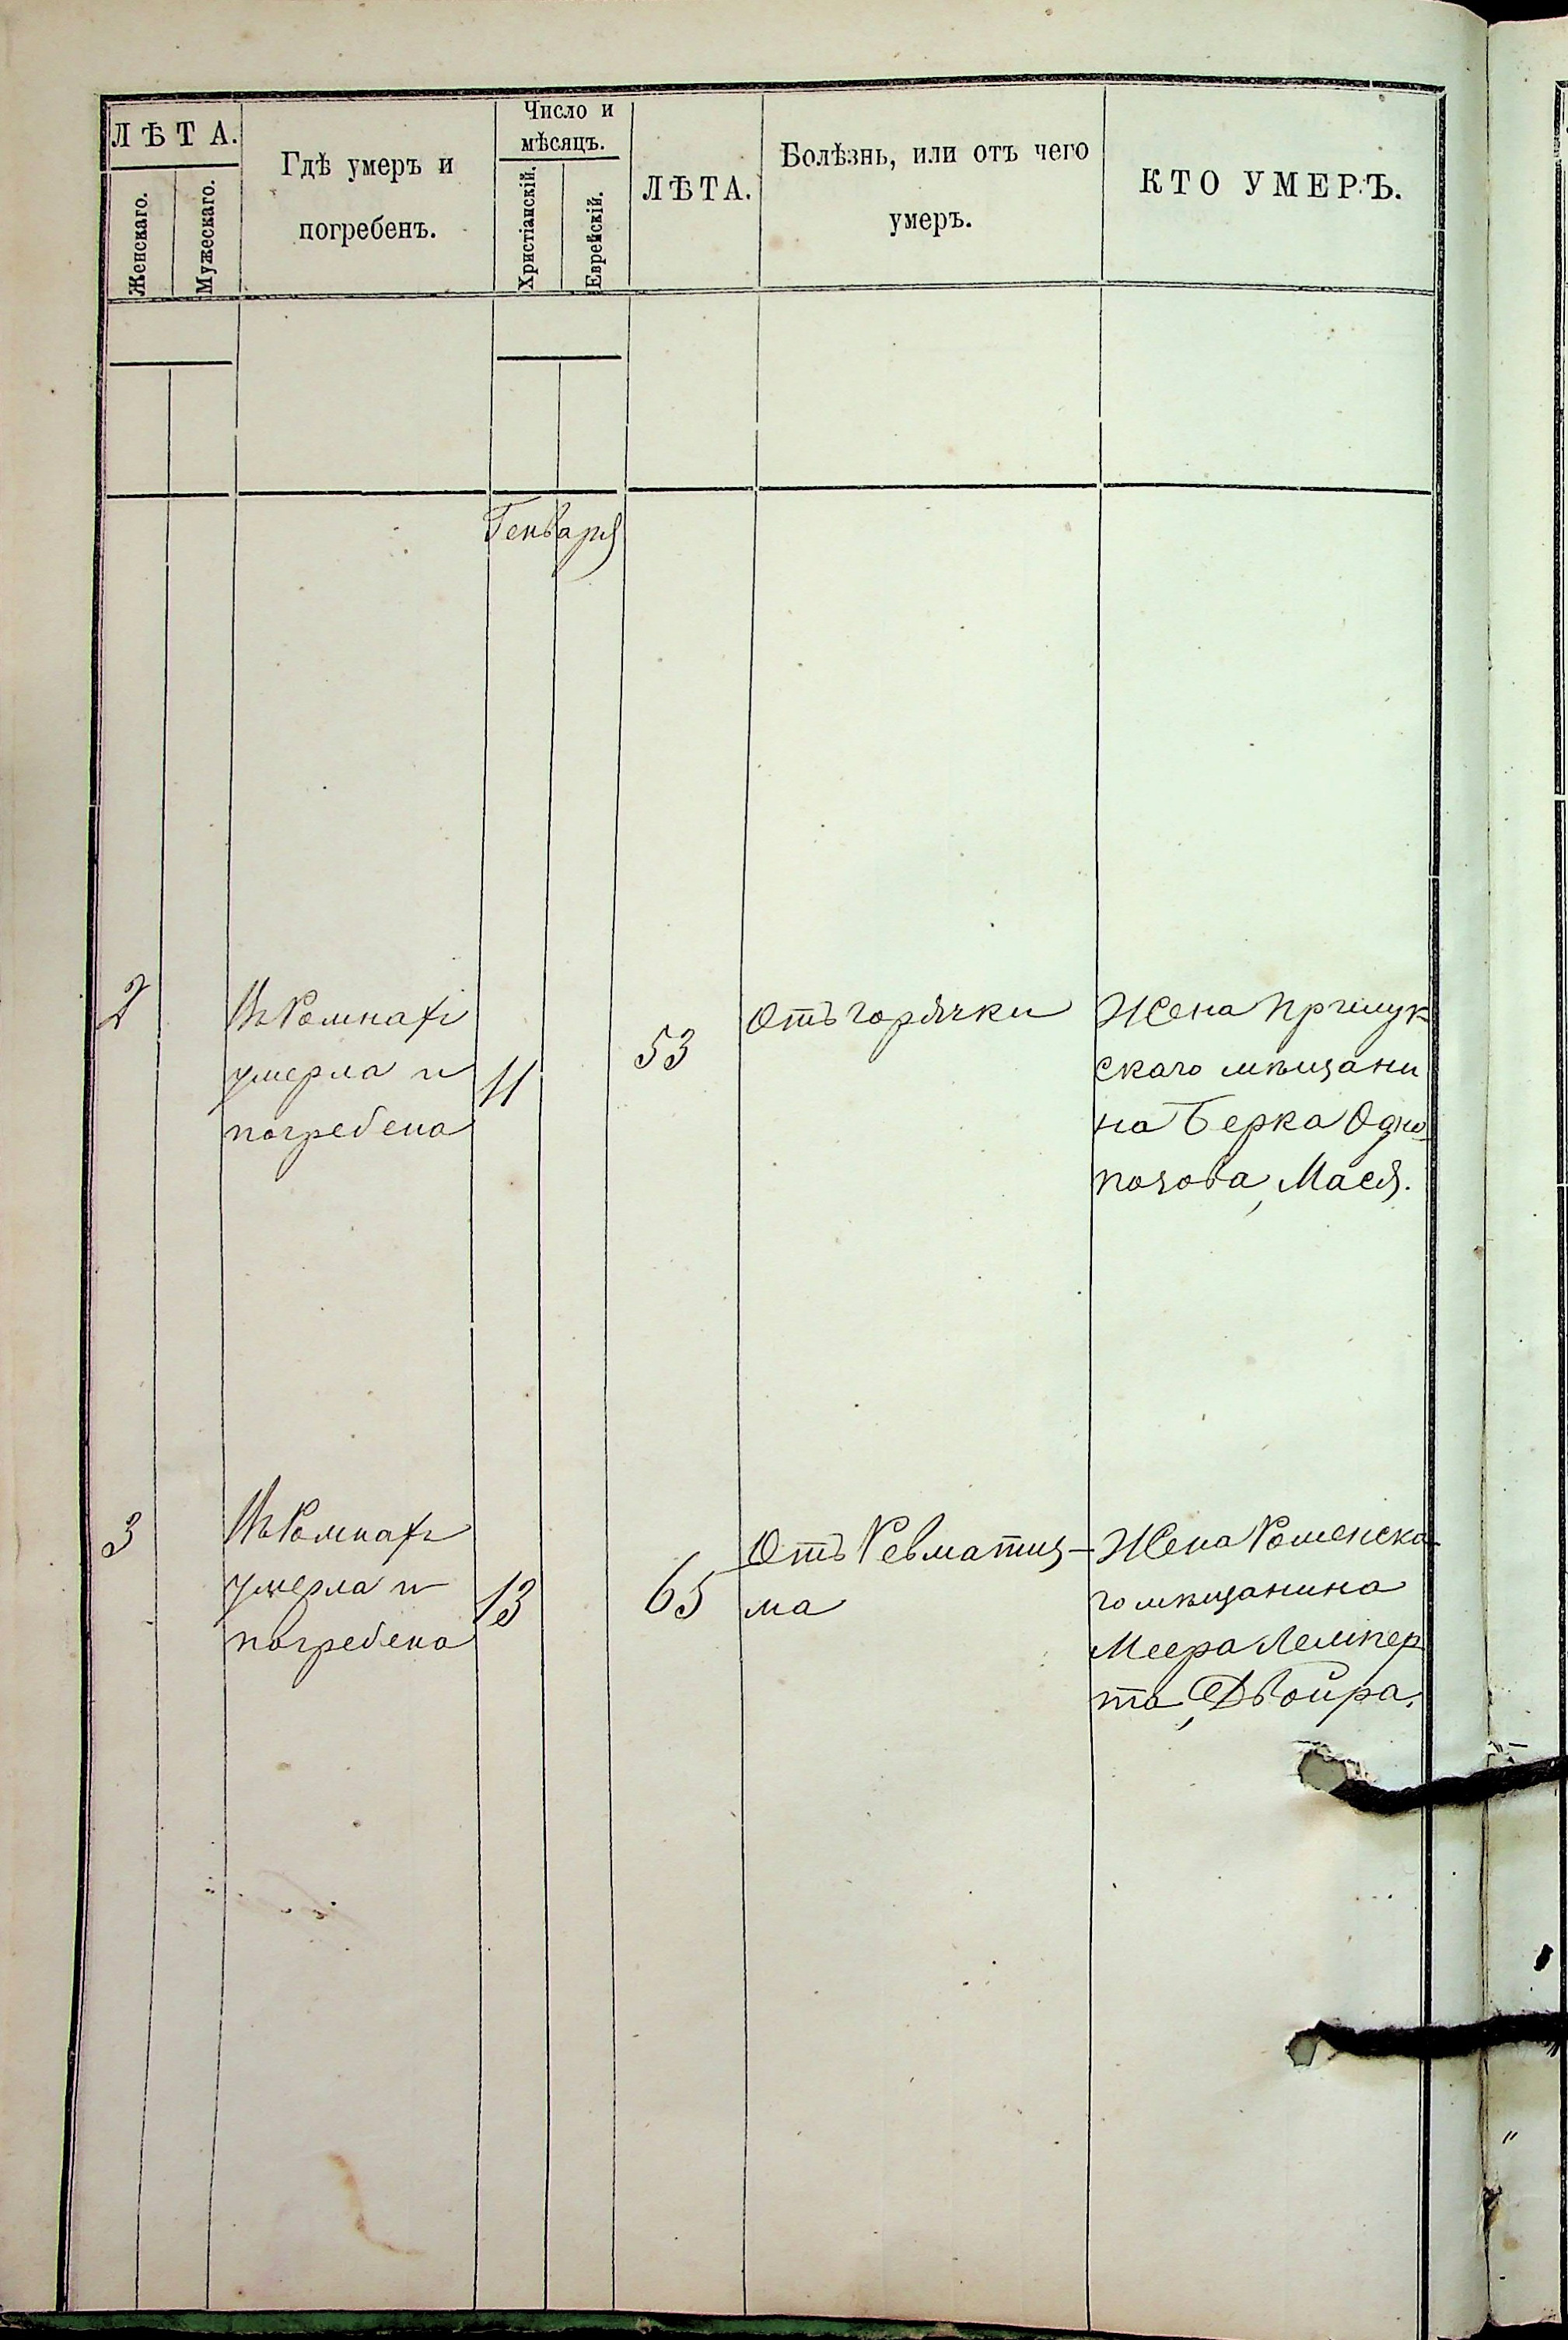 ЛѢТА.
Женскаго.
Мужескаго.
Гдѣ умеръ и
погребенъ.
Число и
мѣсяцъ.
Христіанскій.
Еврейскій.
ЛѢТА.
Болѣзнь, или отъ чего
умеръ.
КТО УМЕРЪ.
Генваря
2
Въ Ромнахъ
умерла и
погребена
11
53
Отъ горячки
Жена Прилук
скаго мѣщани
на Берка Одно
позова, Мася.
3
Въ Ромнахъ
умерла и
погребена
13
65
Отъ Ревматиз-
ма
Жена Роменска-
го мѣщанина
Меера Лемпер
та, Двойра.